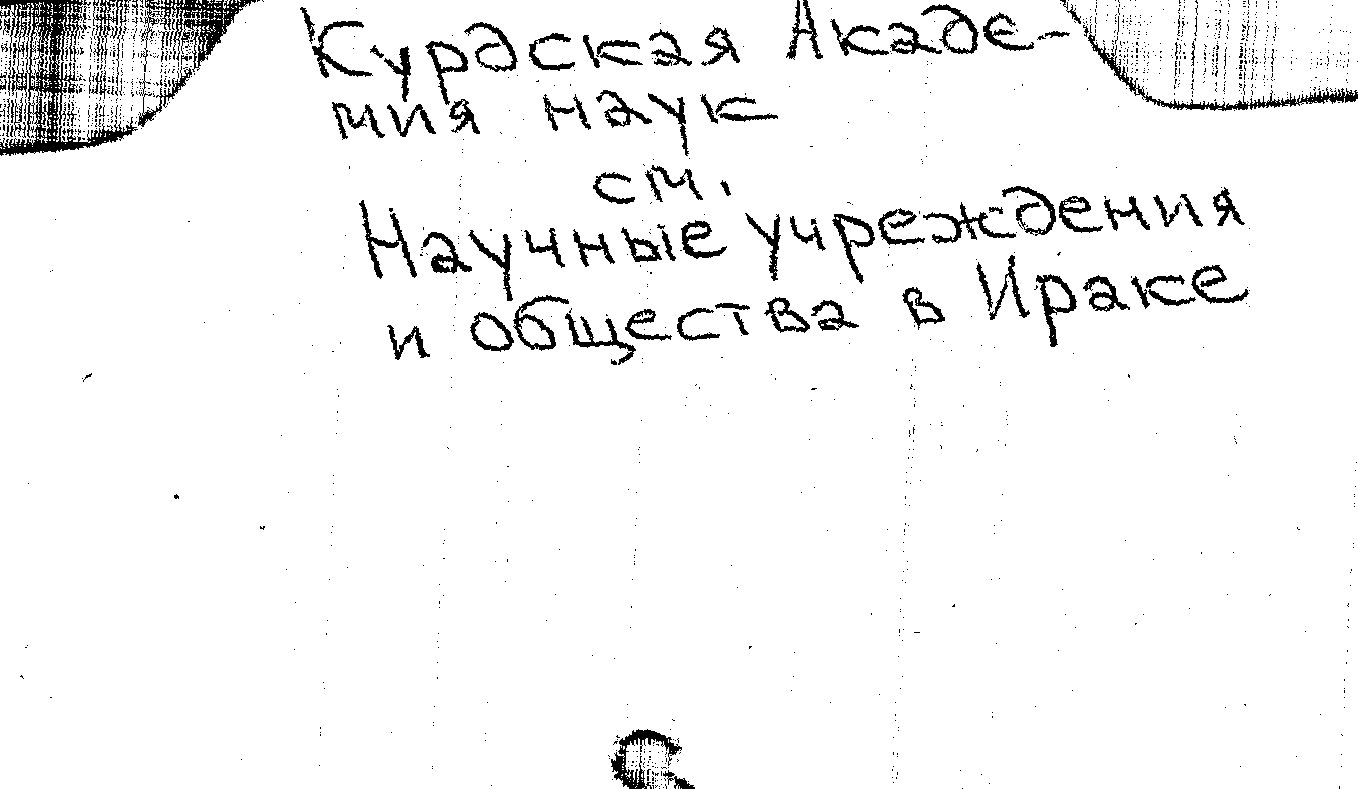 Курдская Акаде-
мия наук
см.
Научные учреждения
и общества в Ираке